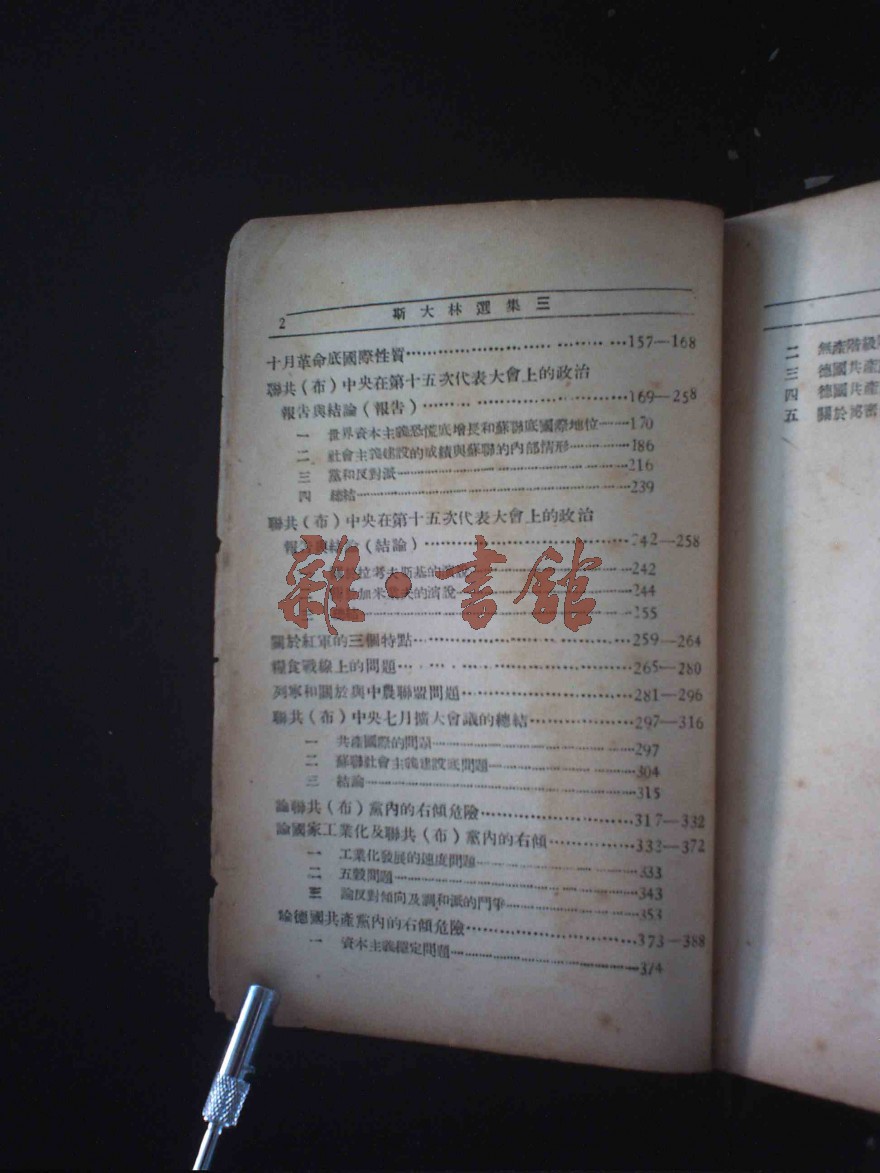 2
斯大林選集三
十月革命底國際性質……157—168
聯共(布)中央在第十五次代表大會上的政治
報告與結論(報告)……169—258
一 世界資本主義恐慌底增長和蘇聯底國際地位……170
二 社會主義建設的成績與蘇聯的內部情形……186
三 黨和反對派……216
四 總結……239
聯共(布)中央在第十五次代表大會上的政治
報告與結論(結論)……242—258
拉考夫斯基的演說……242
加米業夫的演說……244
255
關於紅軍的三個特點……259—264
糧食戰線上的問題……265—280
列寧和關於與中農聯盟問題……281—296
聯共(布)中央七月擴大會議的總結……297—316
一 共產國際的問題……297
二 蘇聯社會主義建設底問題……304
三 結論……315
論聯共(布)黨內的右傾危險……317—332
論國家工業化及聯共(布)黨內的右傾……332—372
一 工業化發展的速度問題……333
二 五穀問題……343
三 論反對傾向及調和派的鬥爭……353
論德國共產黨內的右傾危險……373—388
一 資本主義穩定問題……374
二 無產階級
三 德國共產
四 德國共產
五 關於祕密
雜·書館